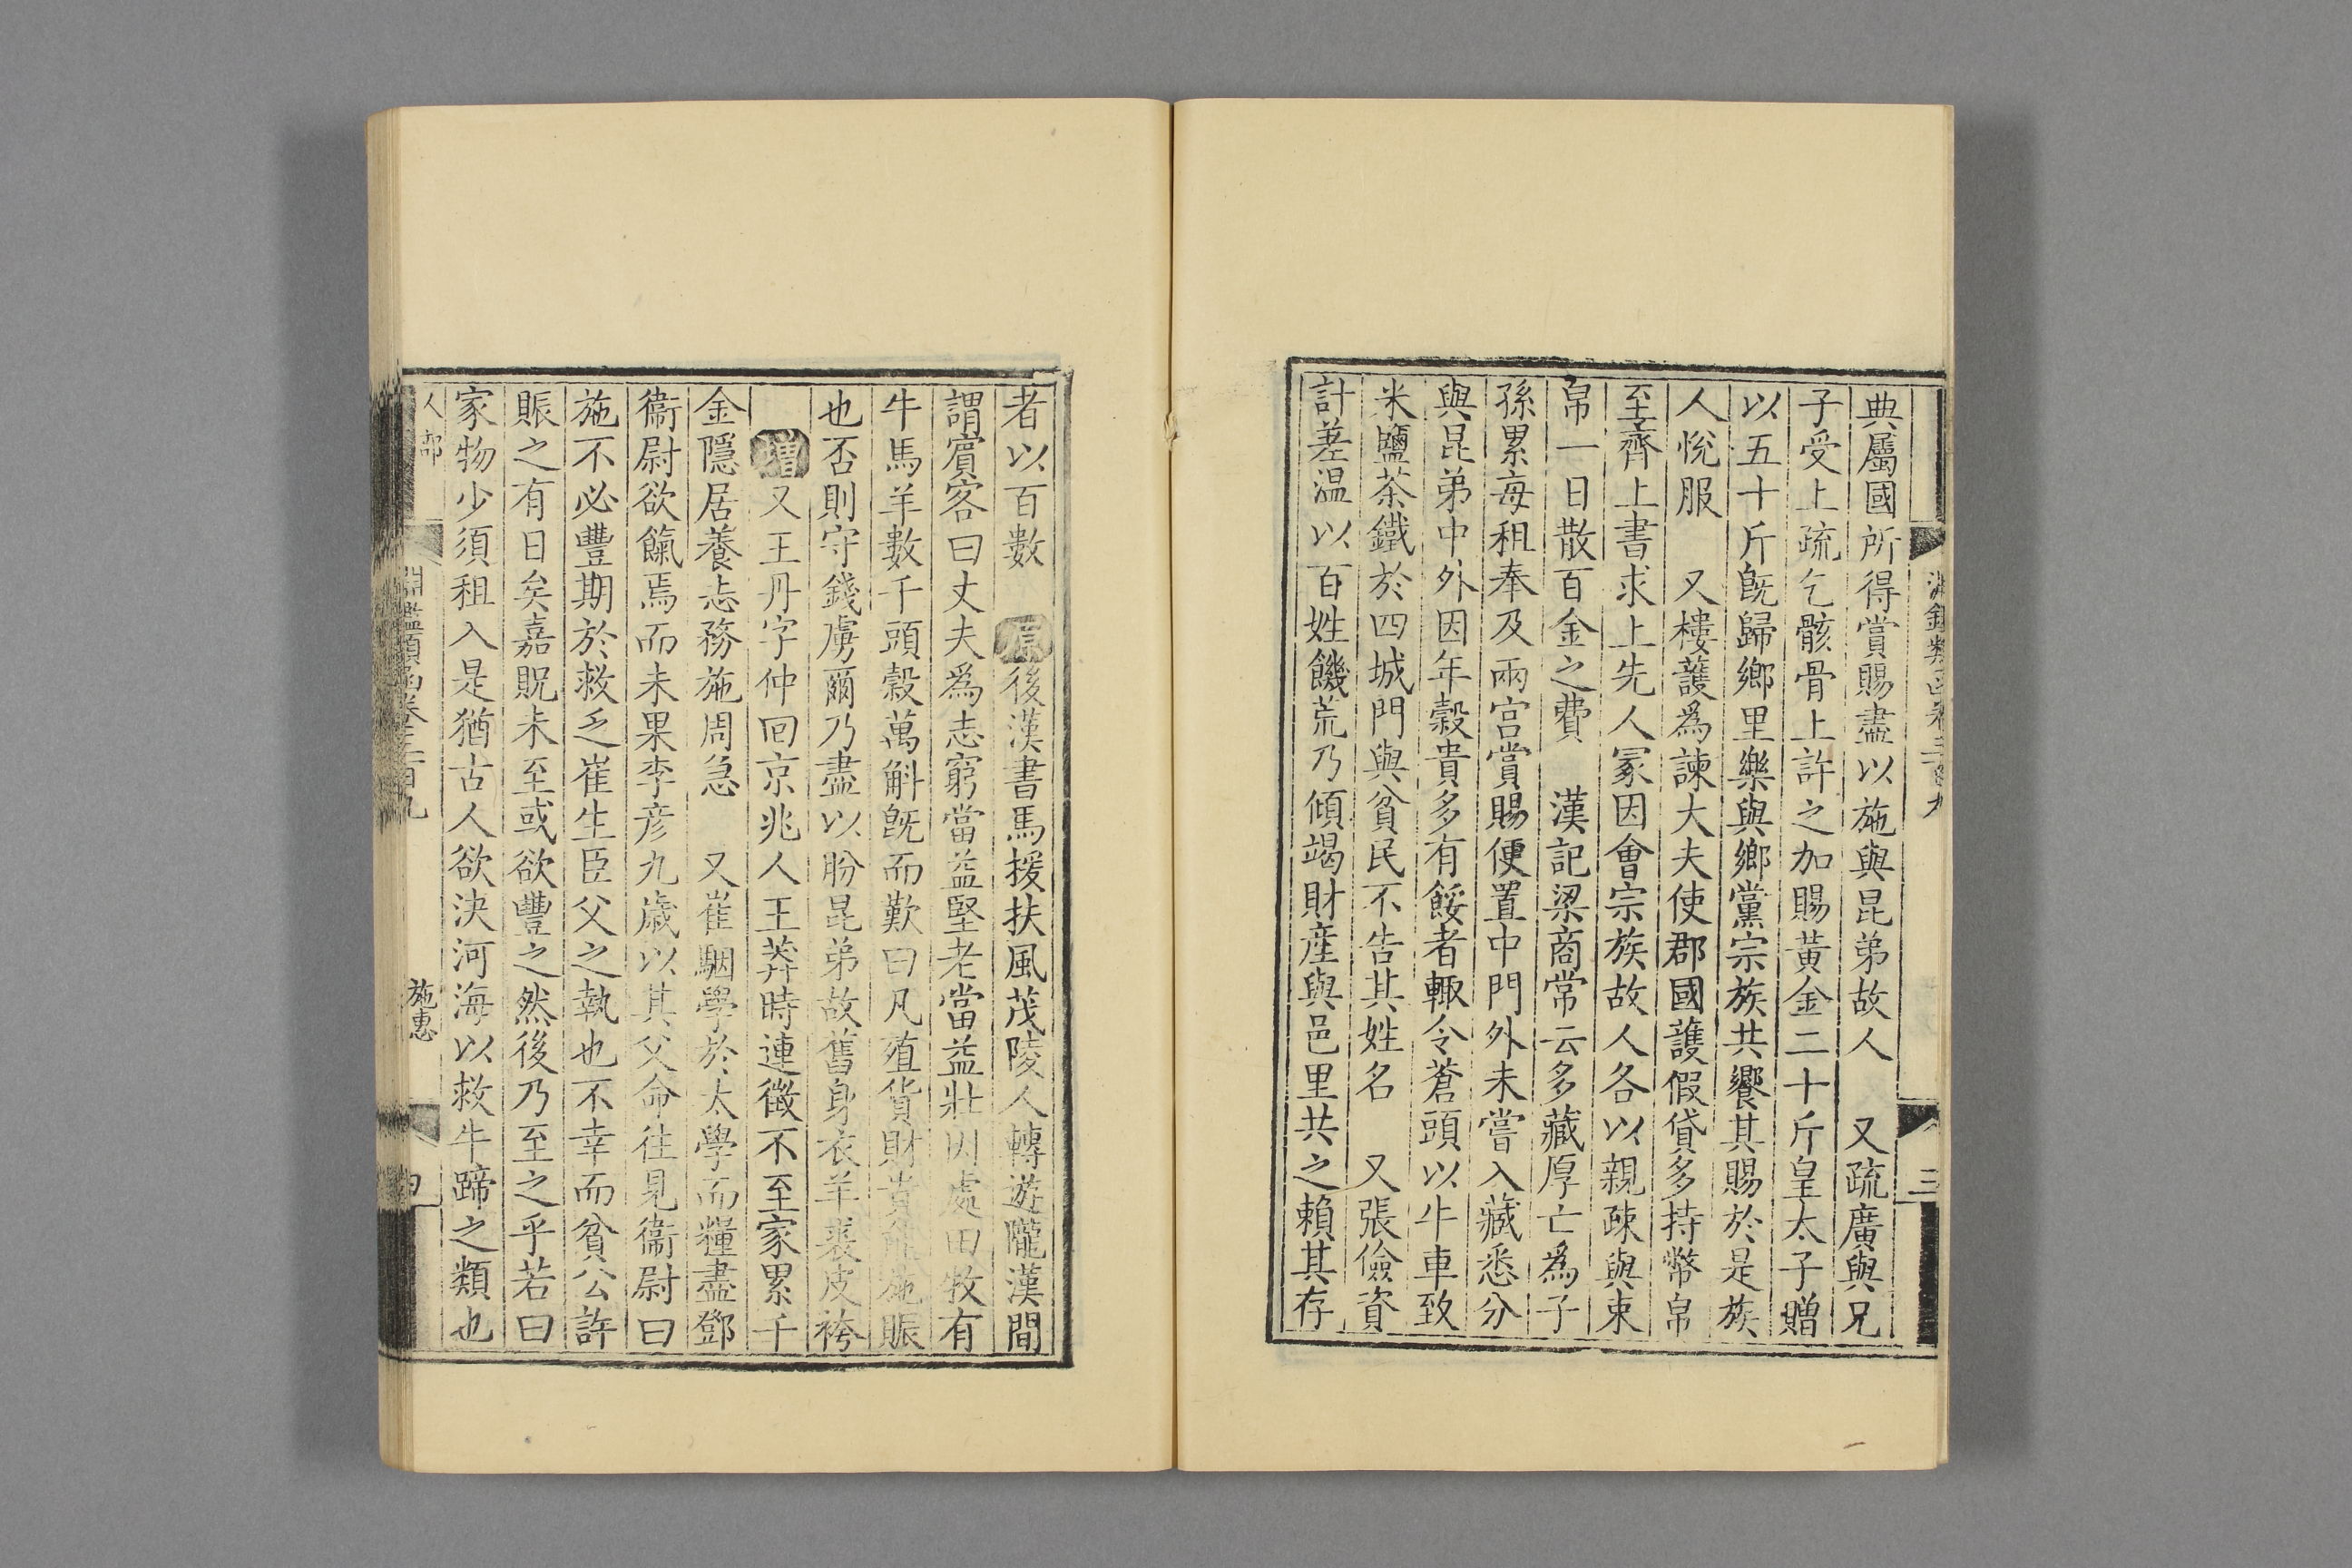 典屬國所得賞賜盡以施與昆弟故人 又疏廣與兄
子受上疏乞骸骨上許之加賜黃金二十斤皇太子贈
以五十斤旣歸鄉里樂與鄉黨宗族共饗其賜於是族
人悅服 又樓護爲諫大夫使郡國護假貸多持幣帛
至齊上書求上先人冢因會宗族故人各以親疎與束
帛一日散百金之費 漢記梁商常云多藏厚亡爲子
孫累每租奉及兩宮賞賜便置中門外未嘗入藏悉分
與昆弟中外因年穀貴多有餒者輙令蒼頭以牛車致
米鹽茶鐵於四城門與貧民不告其姓名 又張儉資
計差温以百姓饑荒乃傾竭財產與邑里共之賴其存
者以百數 原後漢書馬援扶風茂陵人轉遊隴漢間
謂賓客曰丈夫爲志窮當益堅老當益壯因處田牧有
牛馬羊數千頭穀萬斛旣而歎曰凡殖貨財貴能施賑
也否則守錢虜爾乃盡以盼昆弟故舊身衣羊裘皮袴
增又王丹字仲回京兆人王莽時連徵不至家累千
金隱居養志務施周急 又崔駰學於太學而糧盡鄧
衞尉欲餼焉而未果李彥九歲以其父命往見衞尉曰
施不必豐期於救乏崔生臣父之執也不幸而貧公許
賑之有日矣嘉貺未至或欲豐之然後乃至之乎若曰
家物少須租入是猶古人欲決河海以救牛蹄之類也
人部 淵鑑類函卷三百九 施惠 四